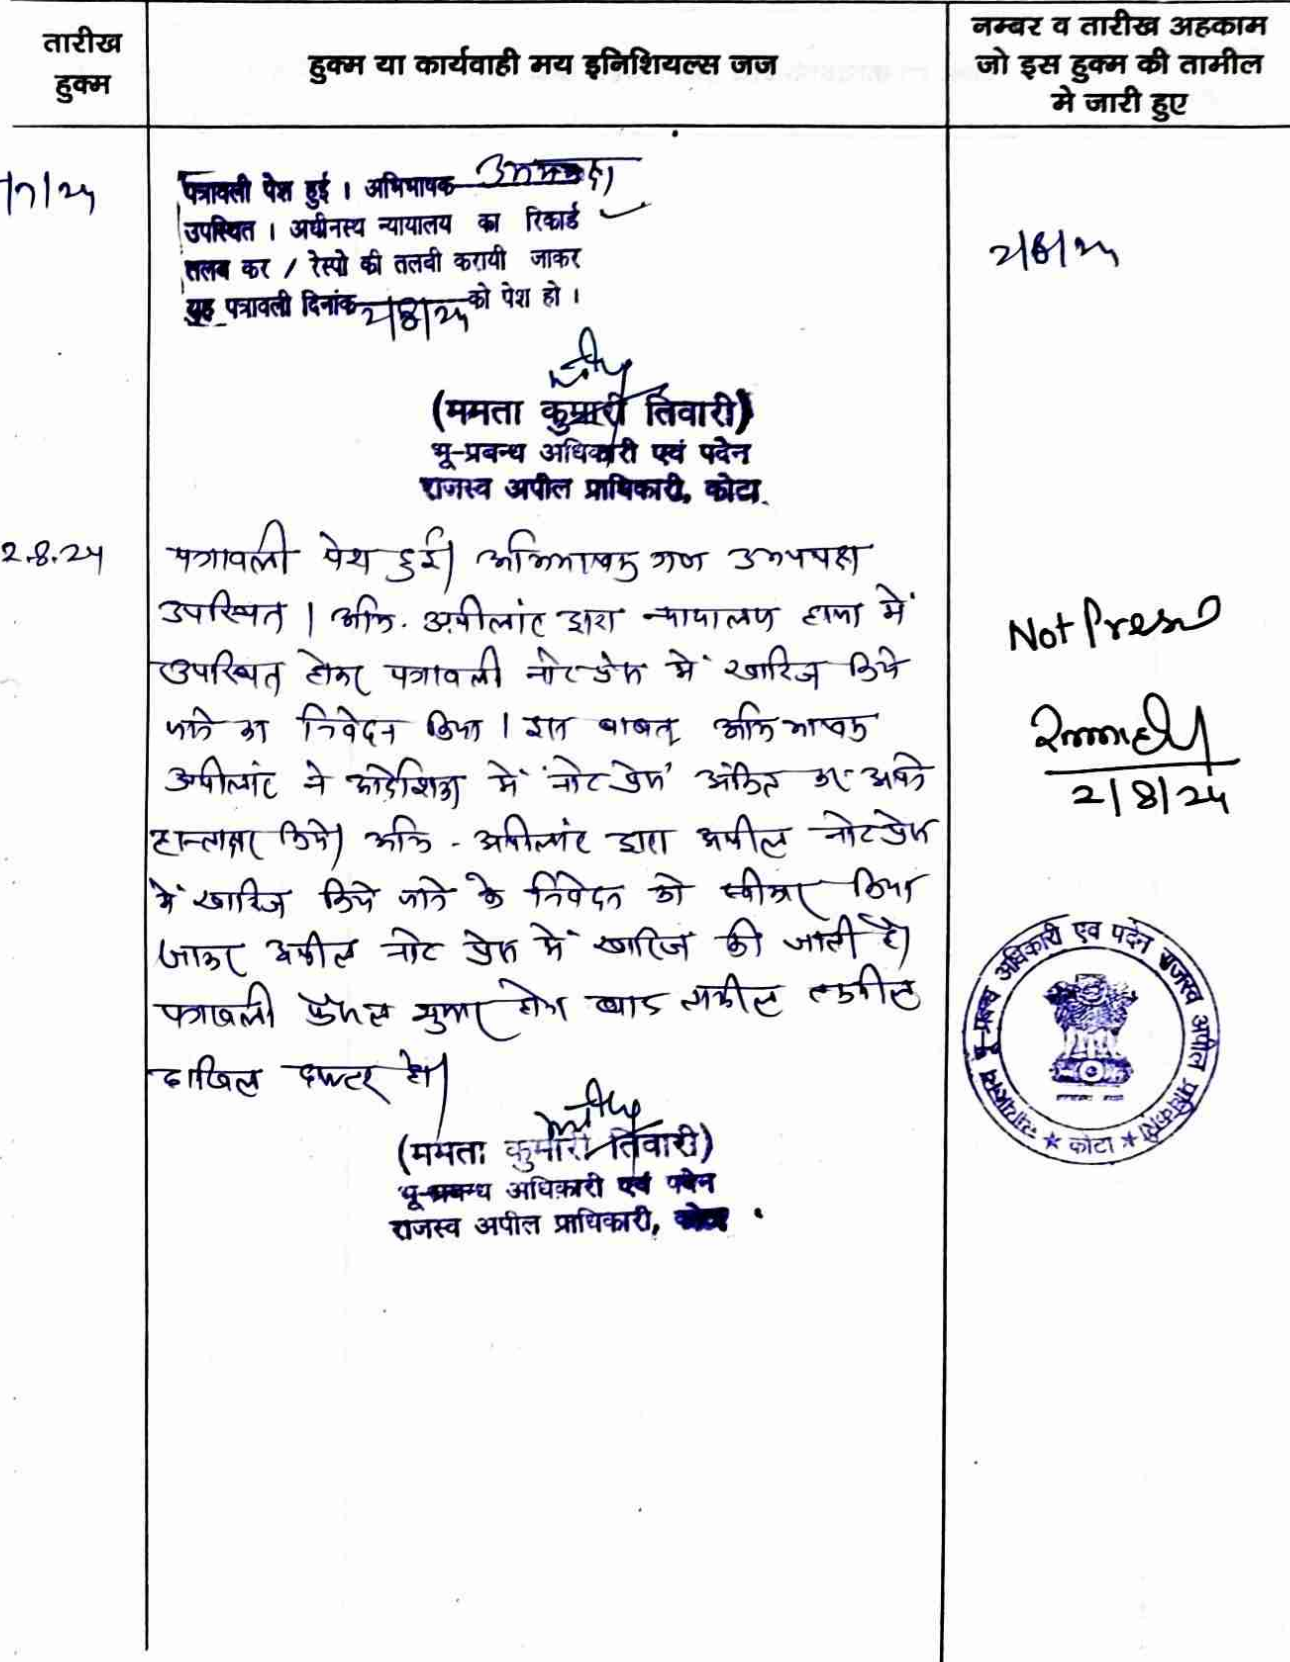 तारीख
हुक्म
हुक्म या कार्यवाही मय इनिशियल्स जज
नम्बर व तारीख अहकाम
जो इस हुक्म की तामील
मे जारी हुए
/7/24
पत्रावली पेश हुई । अभिभाषक उभयपक्ष
उपस्थित । अधीनस्थ न्यायालय का रिकार्ड
तलब कर / रेस्पो की तलवी करायी जाकर
यह पत्रावली दिनांक 2/8/24 को पेश हो ।
2/8/24
(ममता कुमारी तिवारी)
भू-प्रबन्ध अधिकारी एवं पदेन
राजस्व अपील प्राधिकारी, कोटा.
2.8.24
पत्रावली पेश हुई। अभिभाषक गण उभयपक्ष
उपस्थित । अभि. अपीलांट द्वारा न्यायालय हाजा में
उपस्थित होकर पत्रावली नोट प्रेस में खारिज किये
जाने का निवेदन किया । इस बाबत् अभिभाषक
अपीलांट ने आदेशिका में 'नोट प्रेस' अंकित कर अपने
हस्ताक्षर किये। अभि - अपीलांट द्वारा अपील नोट प्रेस
में खारिज किये जाने के निवेदन को स्वीकार किया
जाकर अपील नोट प्रेस में खारिज की जाती है।
पत्रावली फैसल शुमार होकर बाद तकमील
दाखिल दफ्टर हो।
Not Press
2/8/24
(ममता कुमारी तिवारी)
भू-प्रबन्ध अधिकारी एवं पदेन
राजस्व अपील प्राधिकारी, कोटा
न्यायालय भू-प्रबन्ध अधिकारी एवं पदेन राजस्व अपील प्राधिकारी
★ कोटा ★